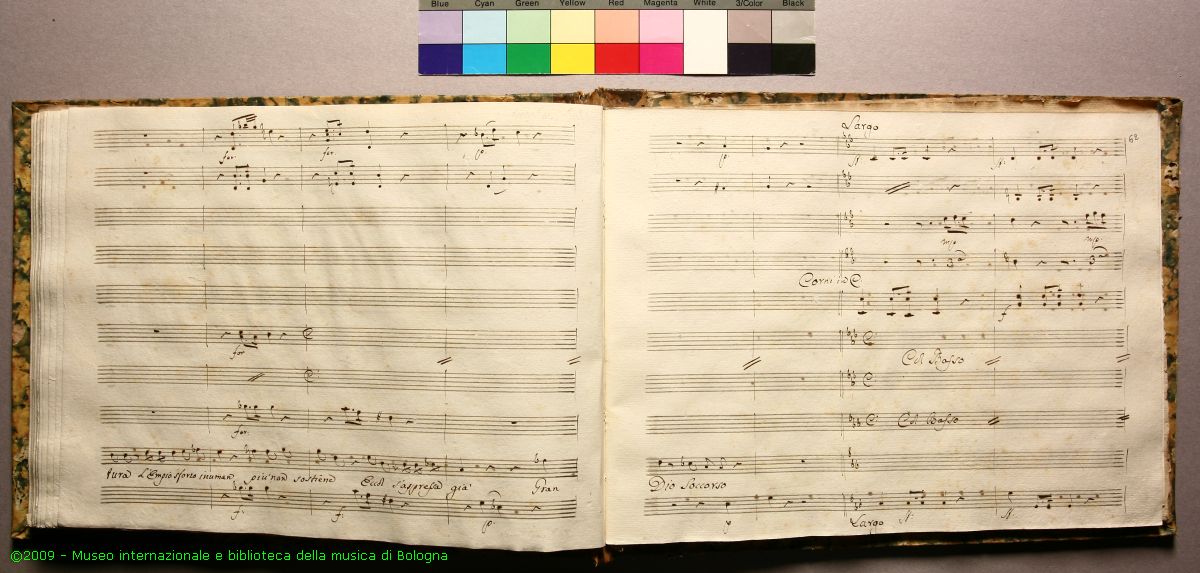 Blue Cyan Green Yellow Red Magenta White 3/Color Black
for. for. p.
for
for.
tura L'Empio sforzo inuman più non sostiene Eccol s'appressa già Gran
f. f. p.
Largo
62
p. ff. ff.
mp. mp.
Corni in C
f
Col Basso
Col Basso
Dio Soccorso
Largo ff. ff.
©2009 - Museo internazionale e biblioteca della musica di Bologna